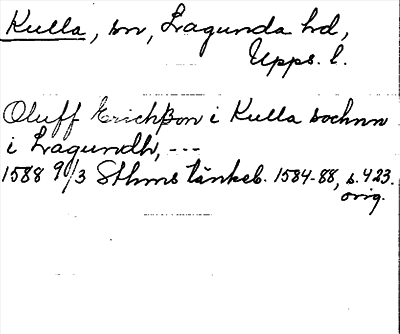 Kulla, sn, Lagunda hd,
Upps. l.
Oluff Erichßon i Kulla sochnn
i Lagundh, ---
1588 9/3 Sthms tänkeb. 1584-88, s. 423.
orig.